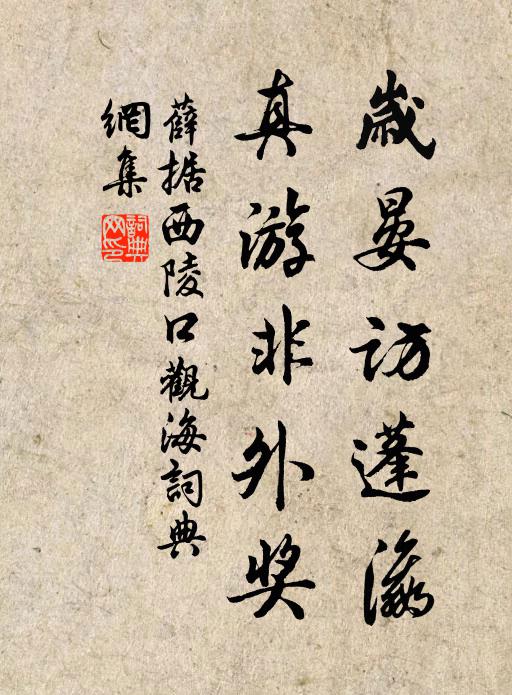 歲晏访蓬瀛
真游非外奖
薛据西陵口觀海詞典
網集
詞典网印